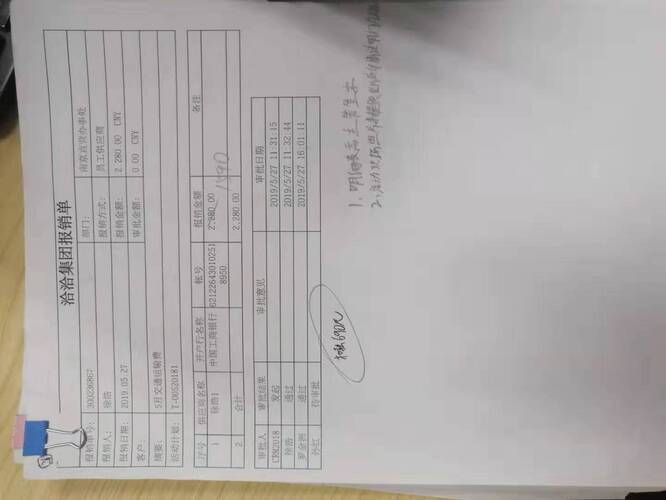 洽洽集团报销单
报销单号: 300236867 部门: 南京直营办事处
报销人: 徐浩 报销方式: 员工供应商
报销日期: 2019.05.27 报销金额: 2,280.00 CNY
客户: 审批金额: 0.00 CNY
摘要: 5月交通运输费
活动计划: T-00520181
序号 供应商名称 开户行名称 帐号 报销金额 备注
1 徐浩1 中国工商银行 62122643010251 2,280.00
8950
1590
2 合计 2,280.00
审批人 审批结果 审批意见 审批日期
CRM2018 发起 2019/5/27 11:31:15
徐浩 通过 2019/5/27 11:32:44
罗金洲 通过 2019/5/27 16:01:11
孙红 待审批
扣款690元
1. 明细表需主管签字
2.